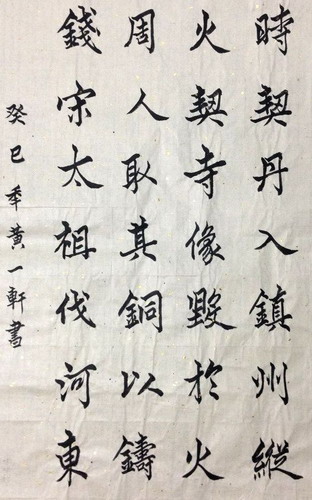 時契丹入鎮州縱
火契寺像毀於火
周人取其銅以鑄
錢宋太祖伐河東
癸巳年黃一軒書